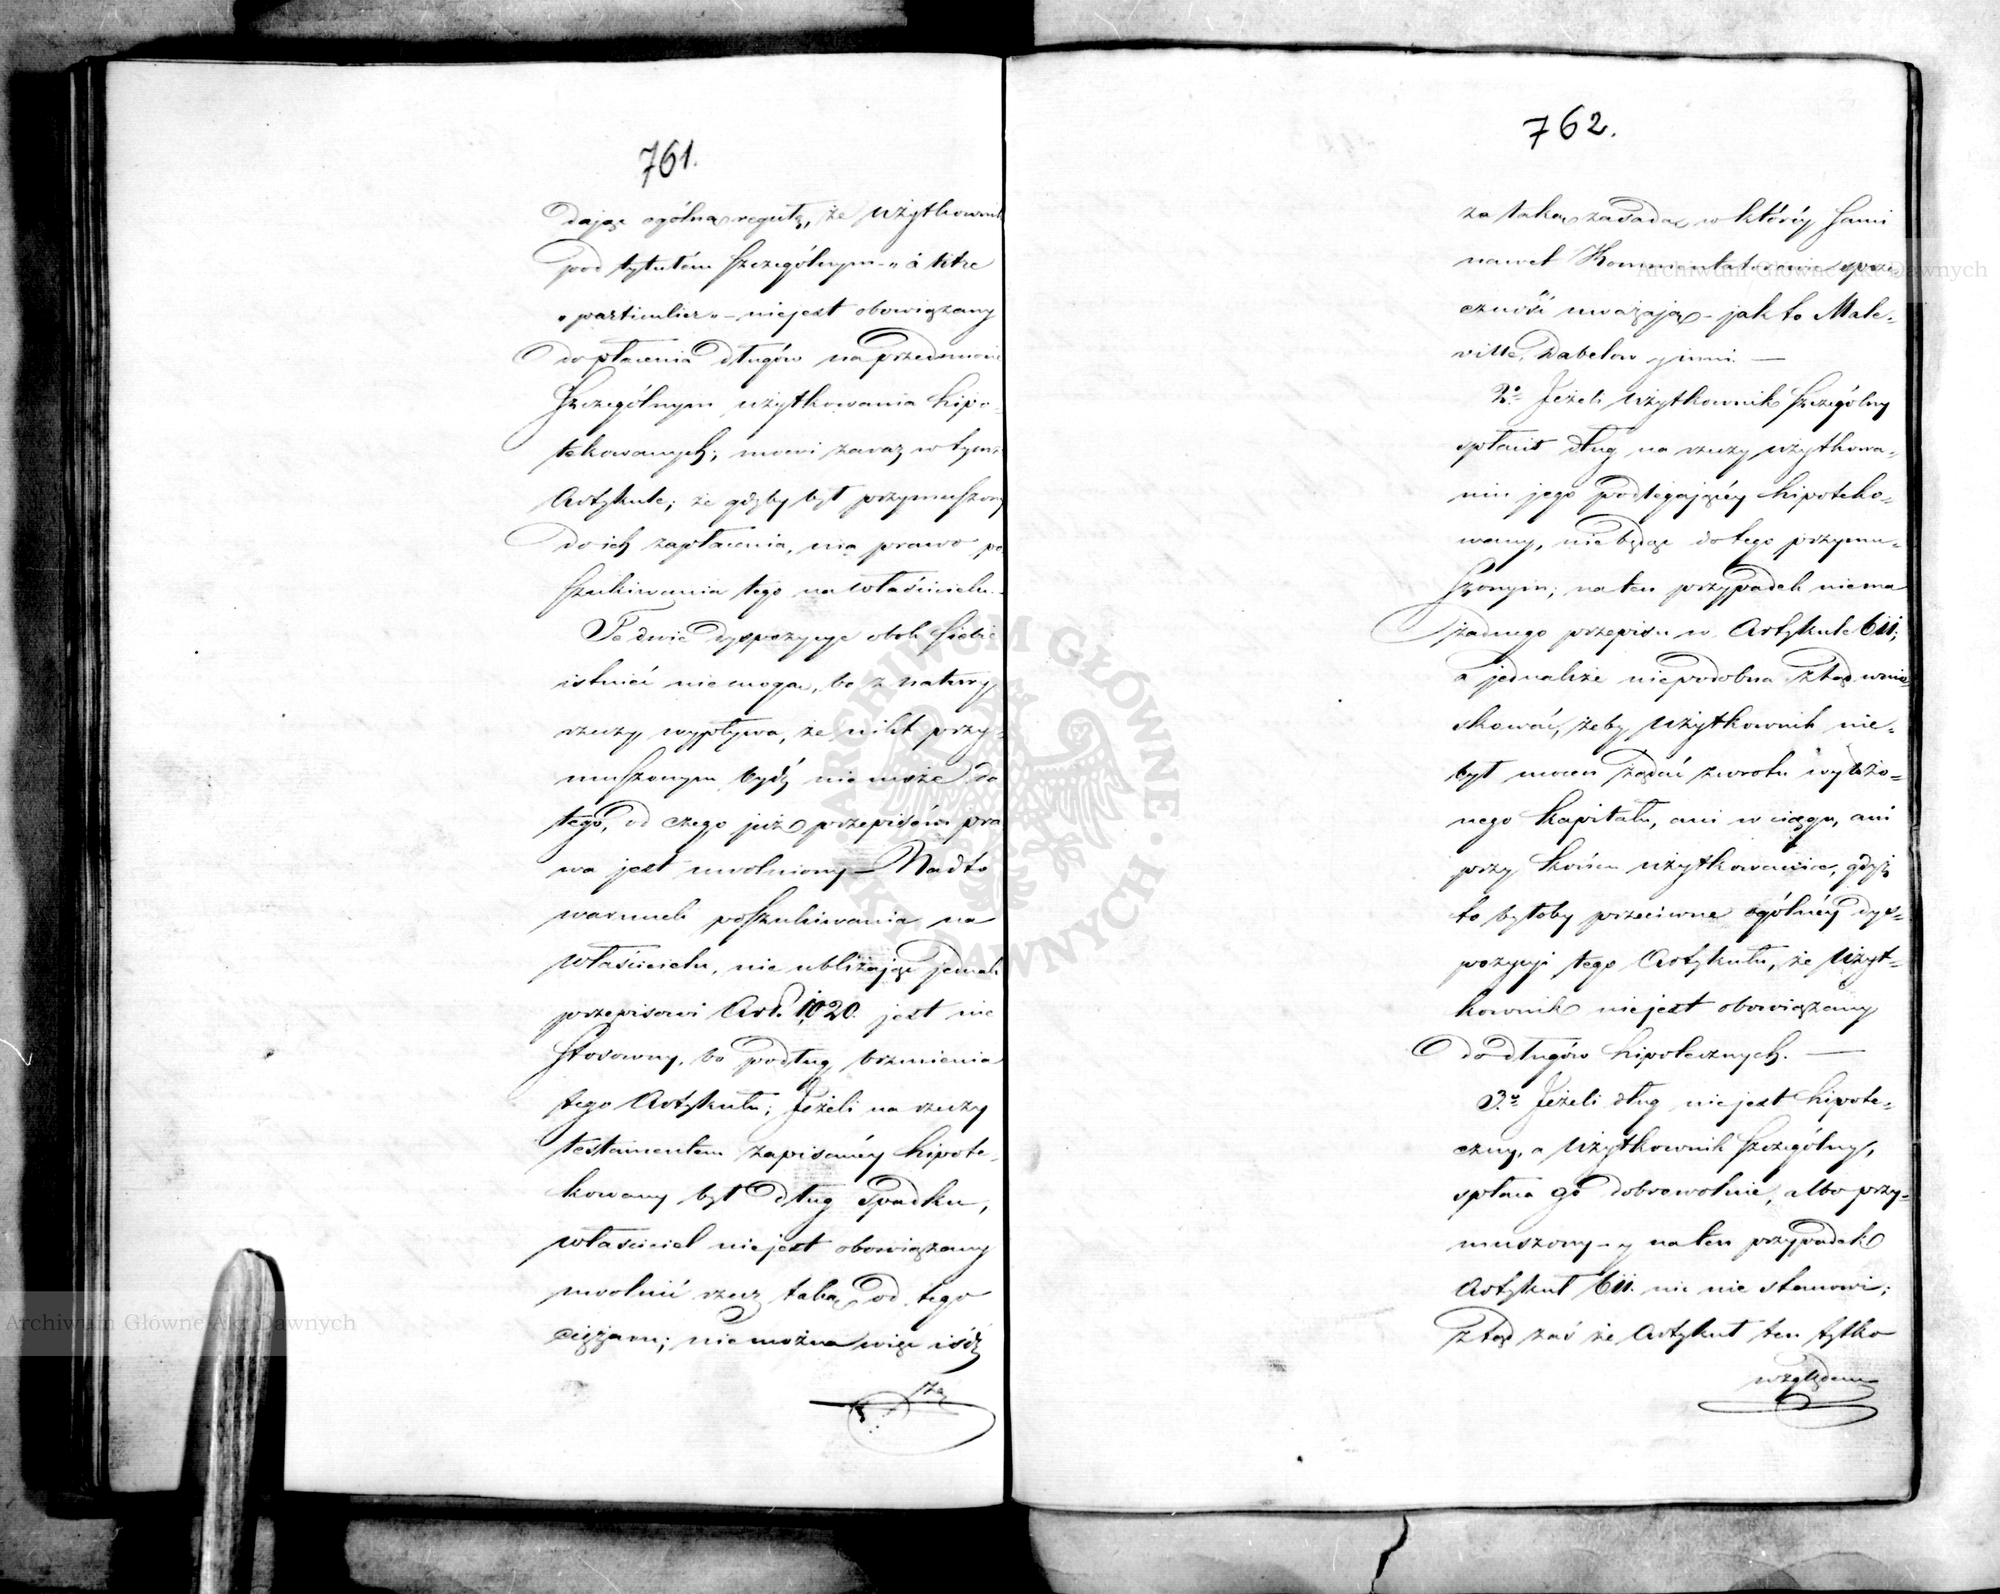 761.
dając ogólną regułę, że Użytkownik
pod tytułem szczególnym „ à titre
„ particulier „ – niejest obowiązany
do płacenia długów na przedmiocie
szczególnym użytkowania hipo-
tekowanych; mówi zaraz w tym
Artykule; że gdyby był przymuszony
do ich zapłacenia, ma prawo po
szukiwania tego na właścicielu.
Te dwie dyspozycye obok siebie
istnieć niemogą, bo z natury
rzeczy wypływa, że nikt przy-
muszonym bydź nie może do
tego, od czego już przepisem pra
wa jest uwolniony – Nadto
warunek poszukiwania na
właścicielu, nie ubliżając jednak
przepisowi Art. 1020. jest nie
stosowny, bo podług brzmienia
tego Artykułu; Jeżeli na rzeczy
testamentem zapisanéy hipote-
kowany był dług spadku,
właściciel niejest obowiązany
uwolnić rzecz taką od tego
ciężaru; niemożna więc iśdź
za
762.
za taką zasadą w któréy sami
nawet Kommentatorowie sprze
czność uważają – jak to Male-
ville, Dabelow y inni. —
2o Jeżeli Użytkownik szczególny
spłacił dług na rzeczy użytkowa-
niu jego podlegającéy hipoteko-
wany, nie będąc do tego przymu-
szonym; na ten przypadek niema
żadnego przepisu w Artykule 611;
a jednakże niepodobna ztąd wnio
skować, żeby Użytkownik nie-
był mocen żądać zwrotu wyłożo-
nego kapitału, ani w ciągu, ani
przy końcu użytkowania, gdyż
to byłoby przeciwne ogólnéy dys-
pozycyi tego Artykułu, że Użyt-
kownik niejest obowiązany
do długów hipotecznych. —
3o Jeżeli dług niejest hipote-
czny, a Użytkownik szczególny,
spłaca go dobrowolnie, albo przy-
muszony – y na ten przypadek
Artykuł 611. nic nie stanowi;
ztąd zaś że Artykuł ten tylko
względem
Archiwum Główne Akt Dawnych
Archiwum Główne Akt Dawnych
ARCHIWUM GŁÓWNE AKT DAWNYCH